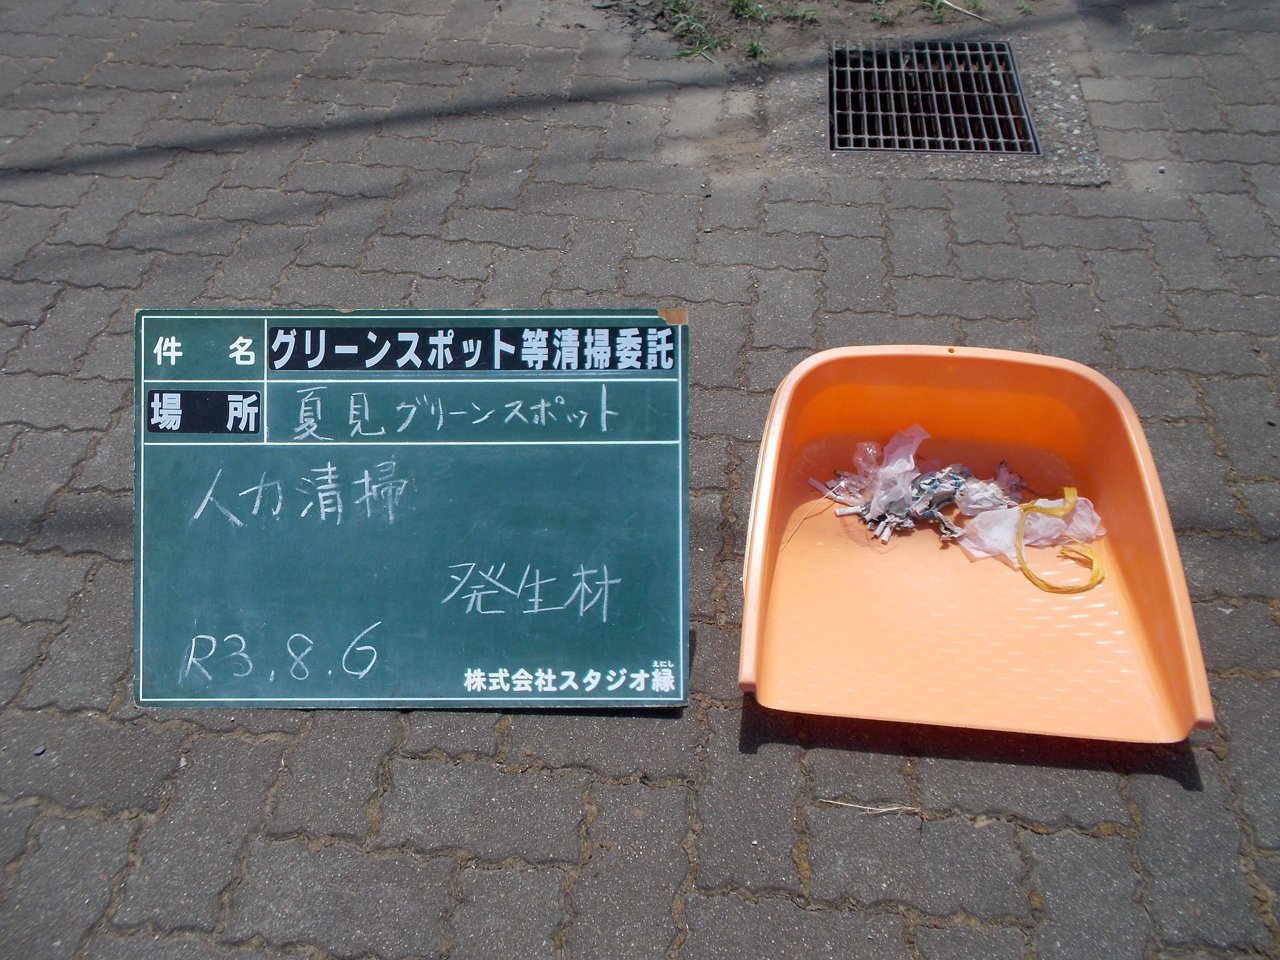 件 名 グリーンスポット等清掃委託
場 所 夏見グリーンスポット
人力清掃
発生材
R3.8.6
えにし
株式会社スタジオ縁